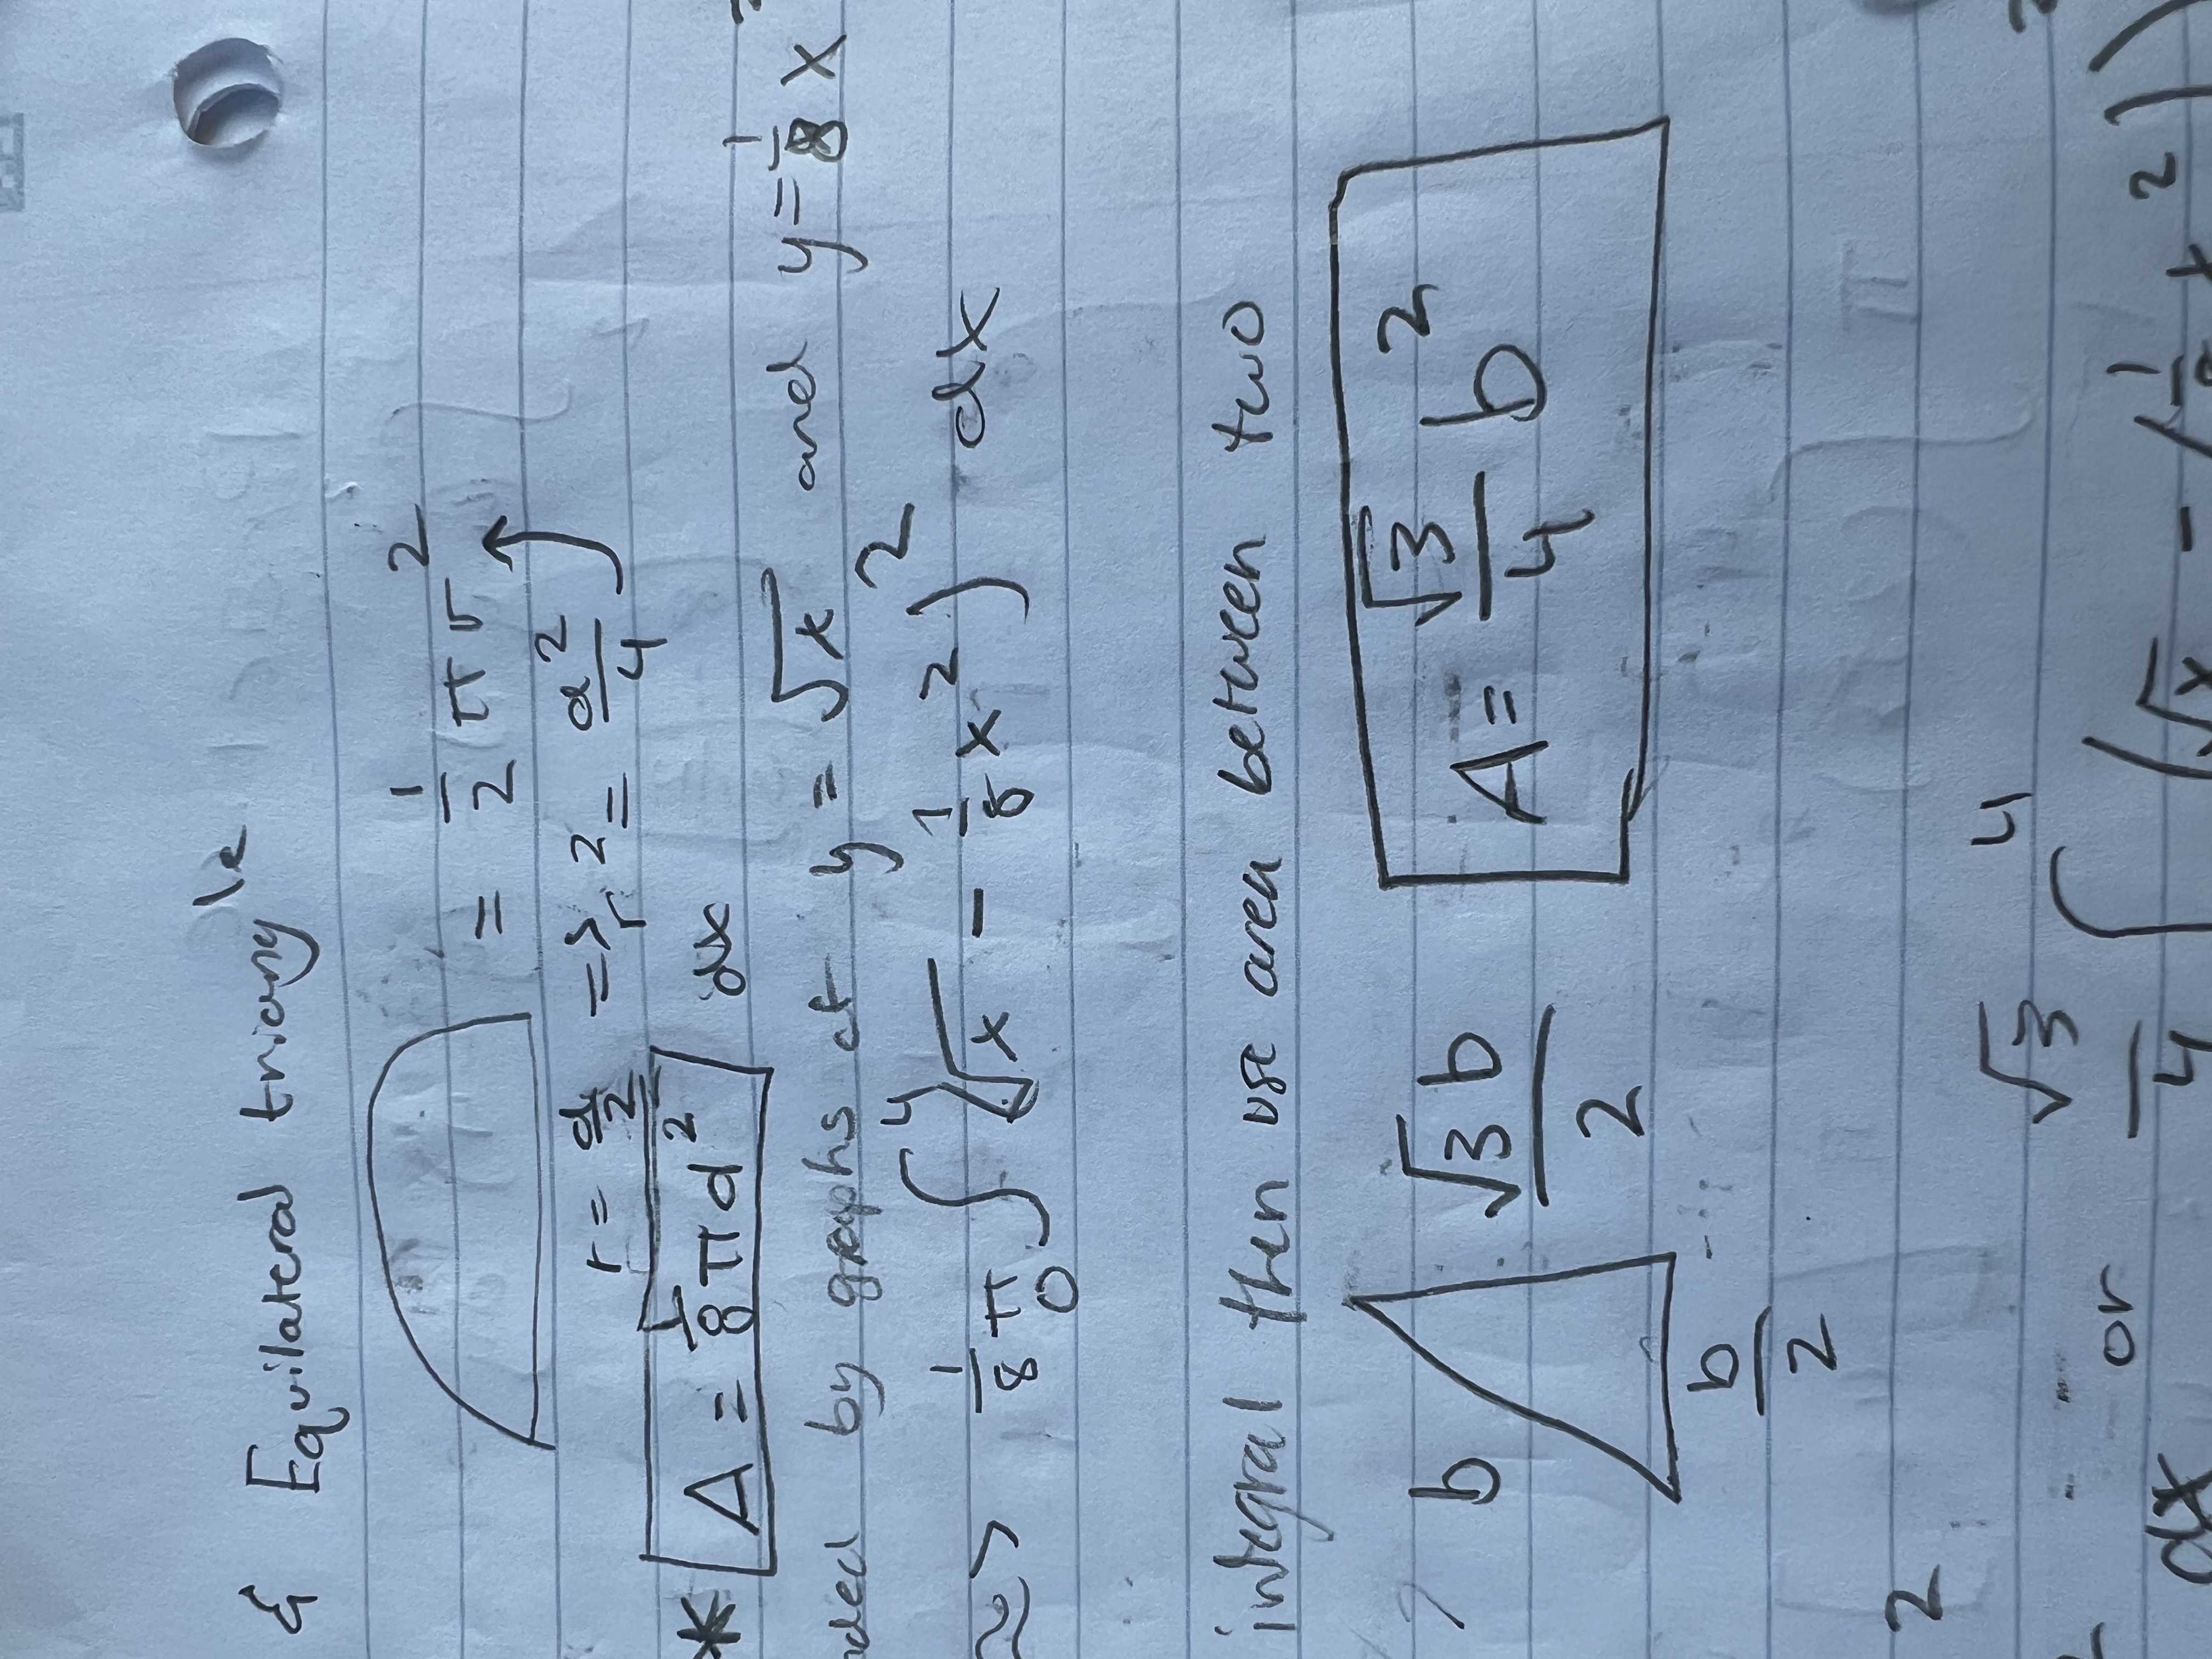 & Equilateral triangle
= 1/2 π r²
r = d/2 => r² = d²/4
* A = 1/8 π d² dx
by graphs of y = √x and y = 1/8 x²
~> 1/8 π ∫₀⁴ √x - 1/8 x²)² dx
integral then use area between two
b √3 b/2 A = √3/4 b²
b/2
2
or √3/4 ∫⁴ (√x - (1/8 x²)
dx